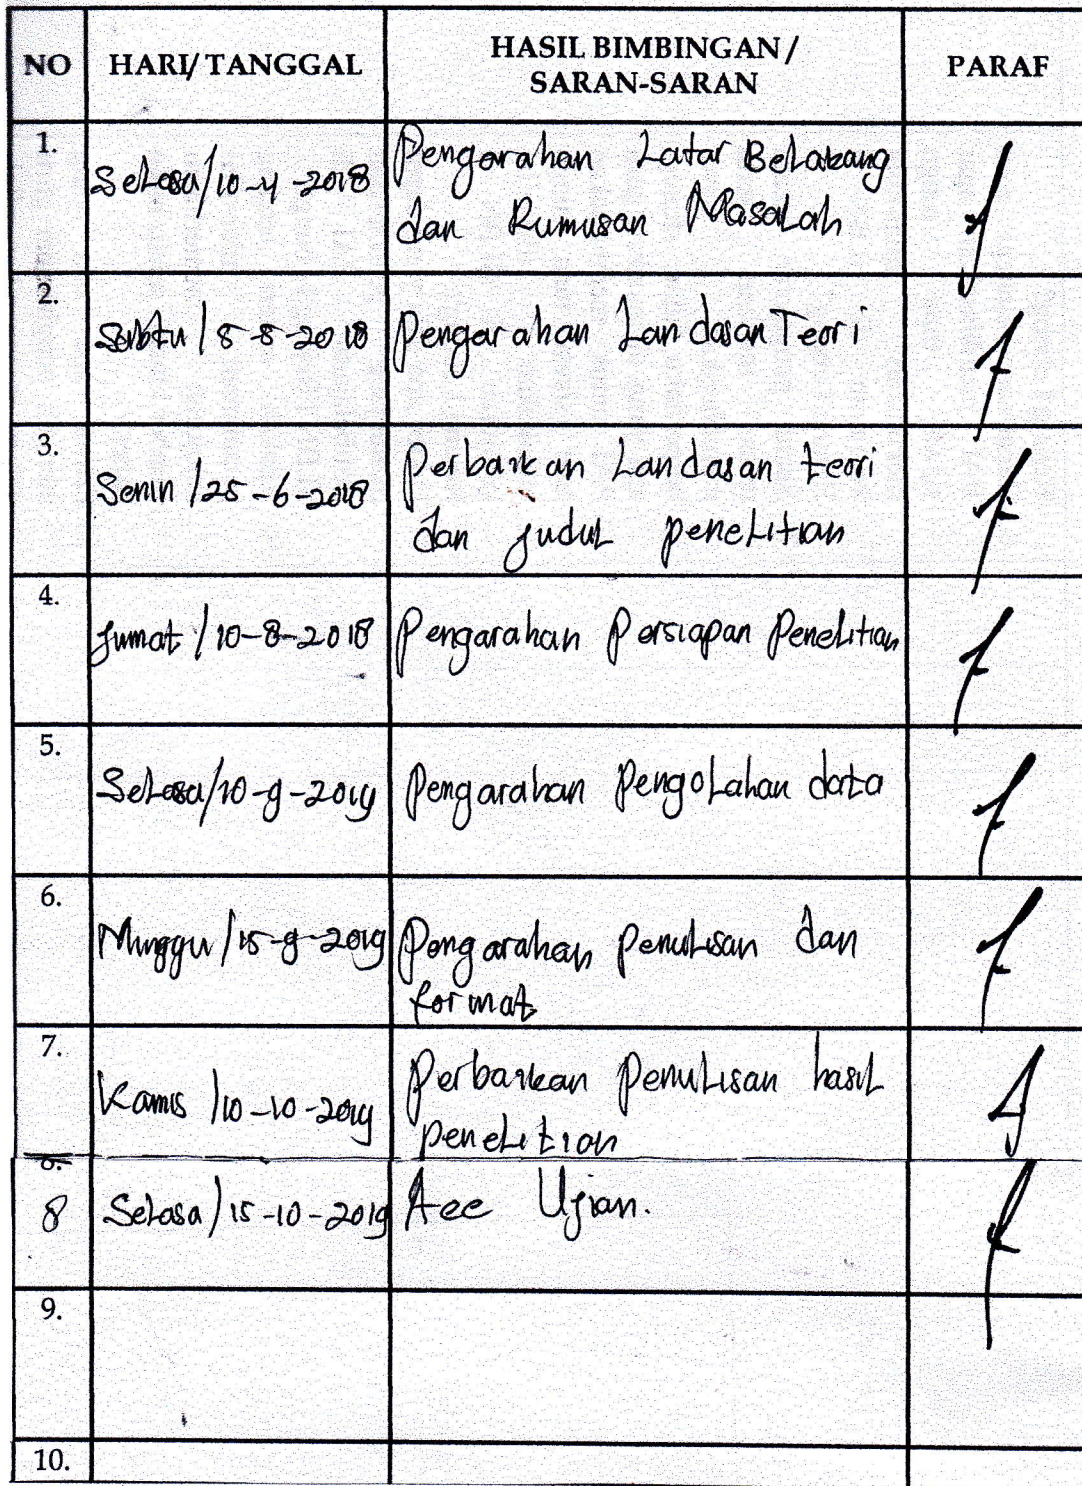 NO HARI/TANGGAL HASIL BIMBINGAN/ SARAN-SARAN PARAF
1. Selasa/10-4-2018 Pengarahan Latar Belakang
dan Rumusan Masalah
2. Sabtu / 5-5-2018 Pengarahan Landasan Teori
3. Senin / 25-6-2018 Perbaikan Landasan teori
dan judul penelitian
4. Jumat / 10-8-2018 Pengarahan Persiapan Penelitian
5. Selasa/10-9-2019 Pengarahan Pengolahan data
6. Minggu / 15-9-2019 Pengarahan penulisan dan
format
7. Kamis / 10-10-2019 Perbaikan Penulisan hasil
penelitian
8 Selasa / 15-10-2019 Acc Ujian.
9.
10.